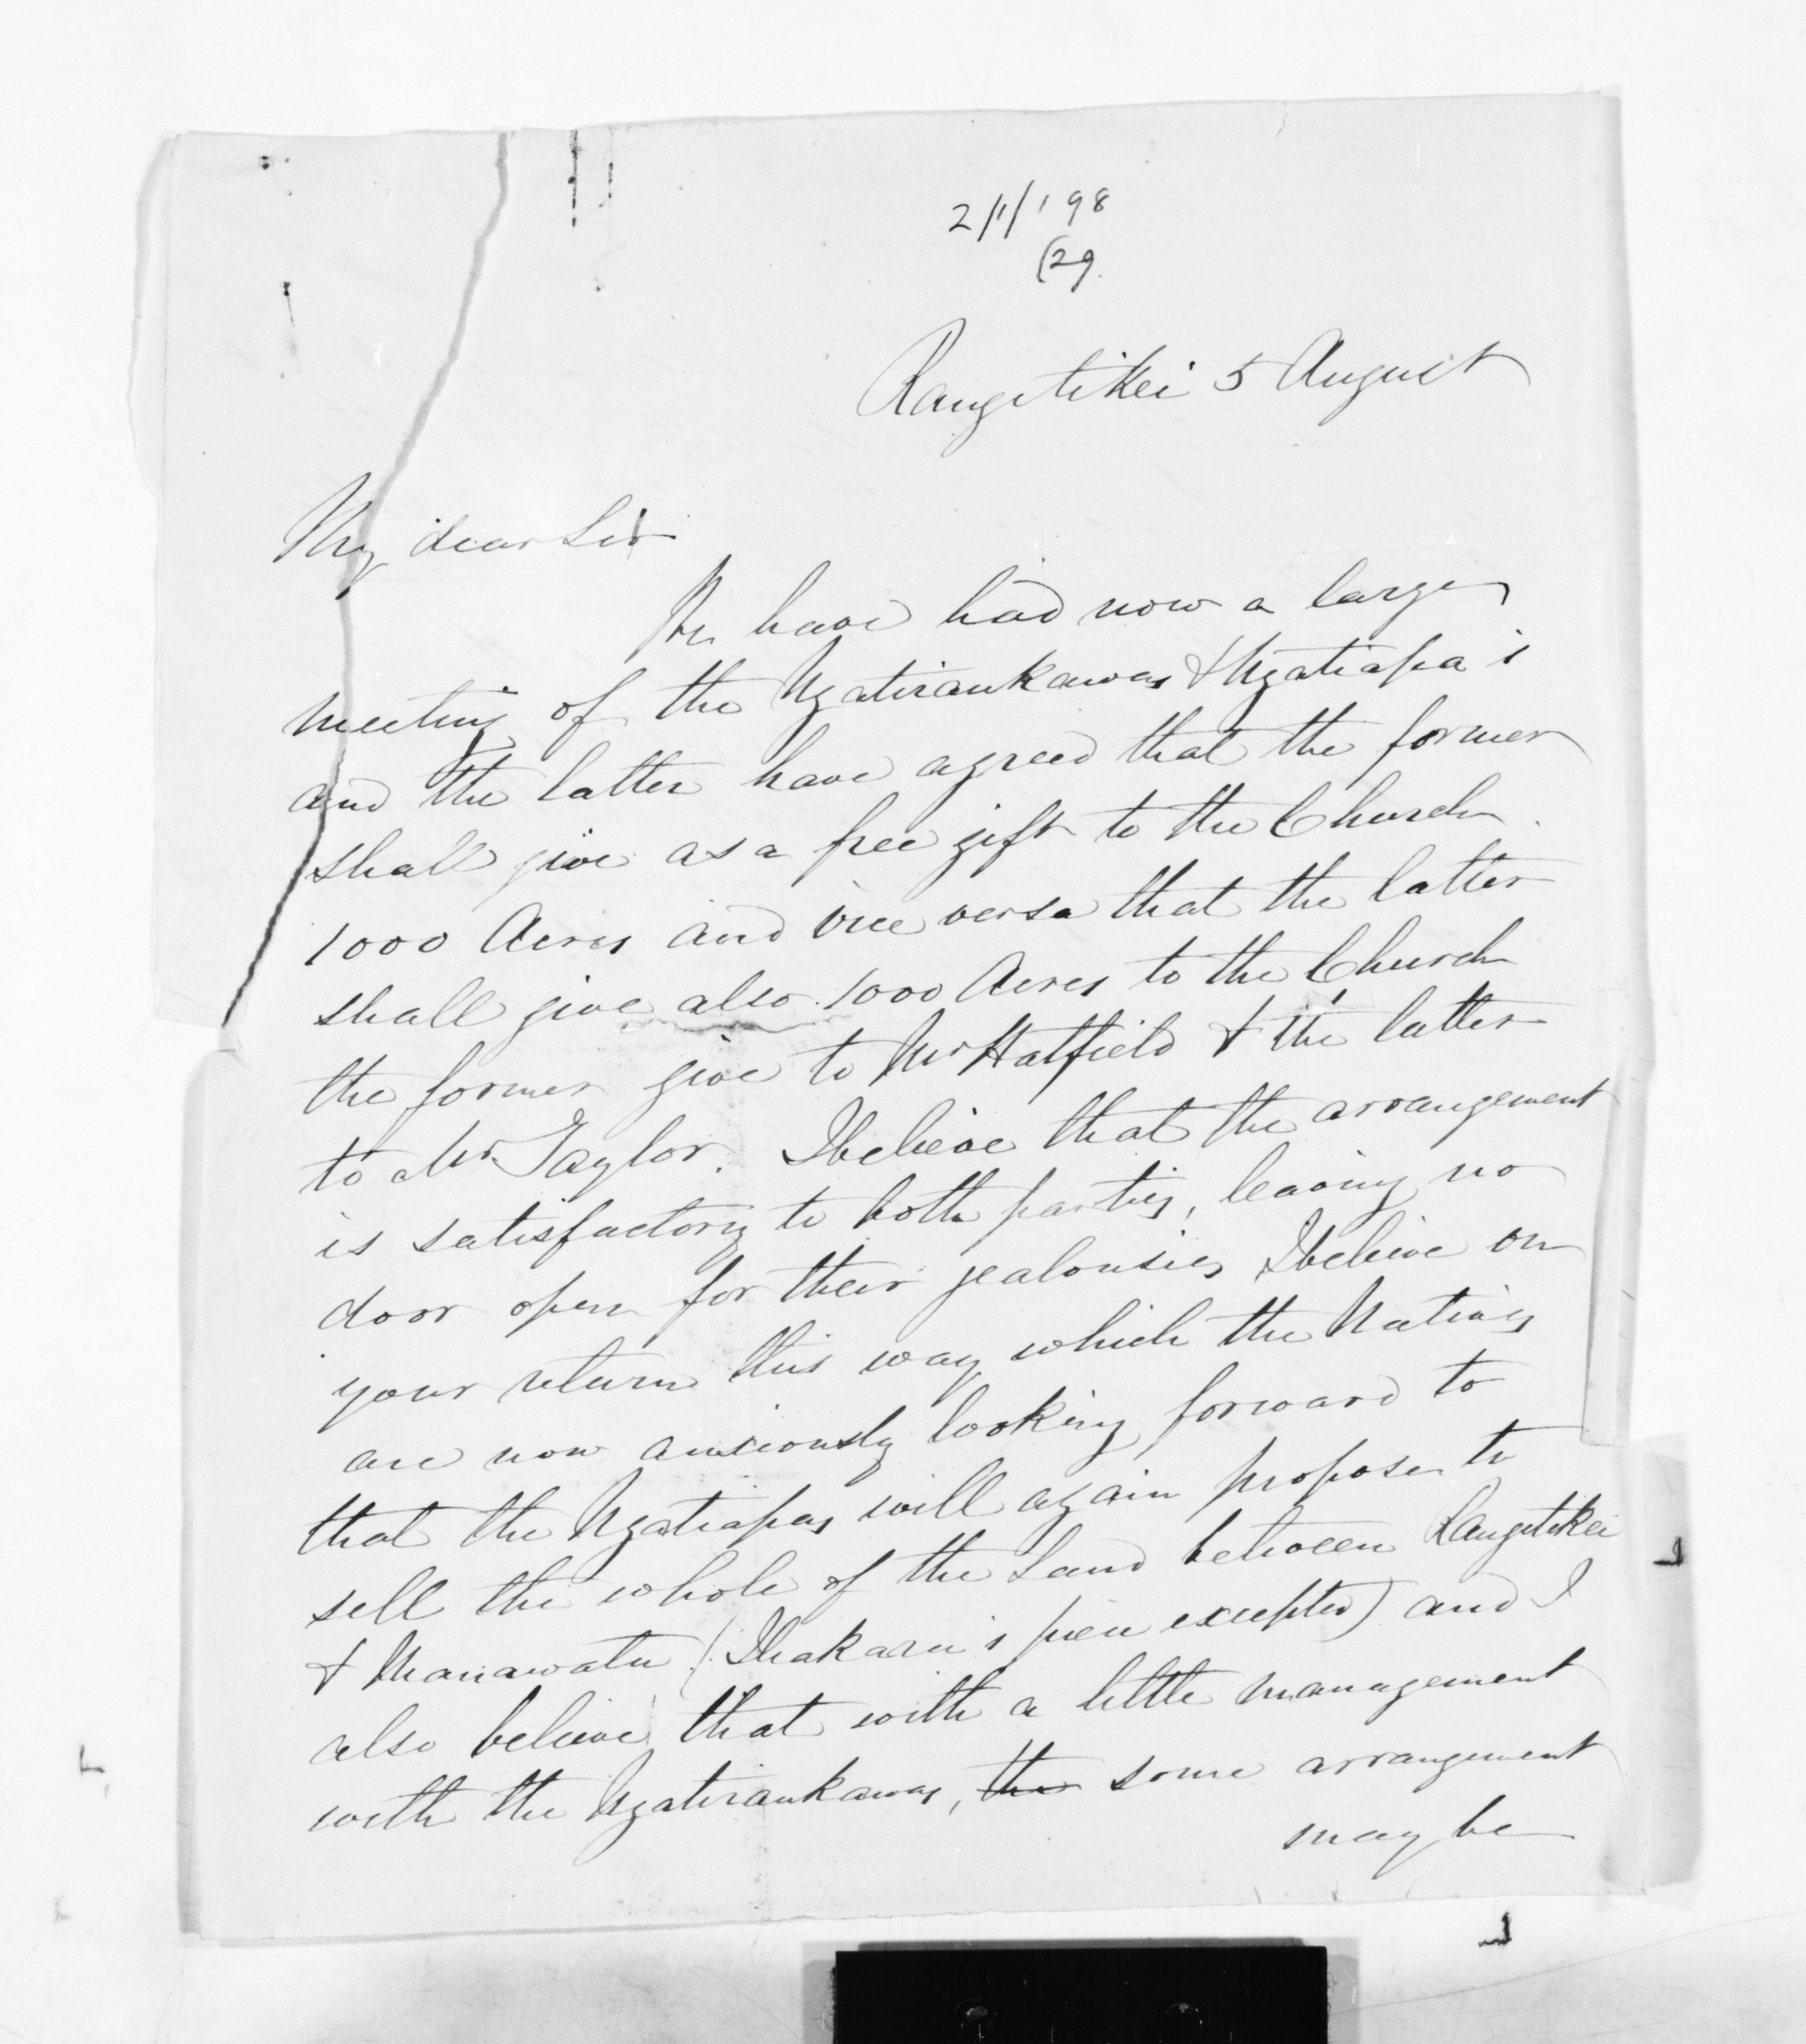 2/1/198
(29.
Rangetikei 5 August
My dear Sir
We have had now a large
meeting of the Ngatiraukawas & Ngatiapa's
and the latter have agreed that the former
shall give as a free gift to the Church
1000 Acres and vice versa that the latter
shall give also 1000 Acres to the Church
the former give to Mr Hatfield & the latter
to Mr Taylor. I believe that the arrangement
is satisfactory to both parties, leaving no
door open for their jealousies I believe on
your return this way which the Natives
are now anxiously looking forward to
that the Ngatiapas will again propose to
sell the whole of the Land between Rangetikei
& Manawatu (Ihakara's piece excepted) and I
also believe that with a little management
with the Ngatiraukawas, the some arrangement
may be